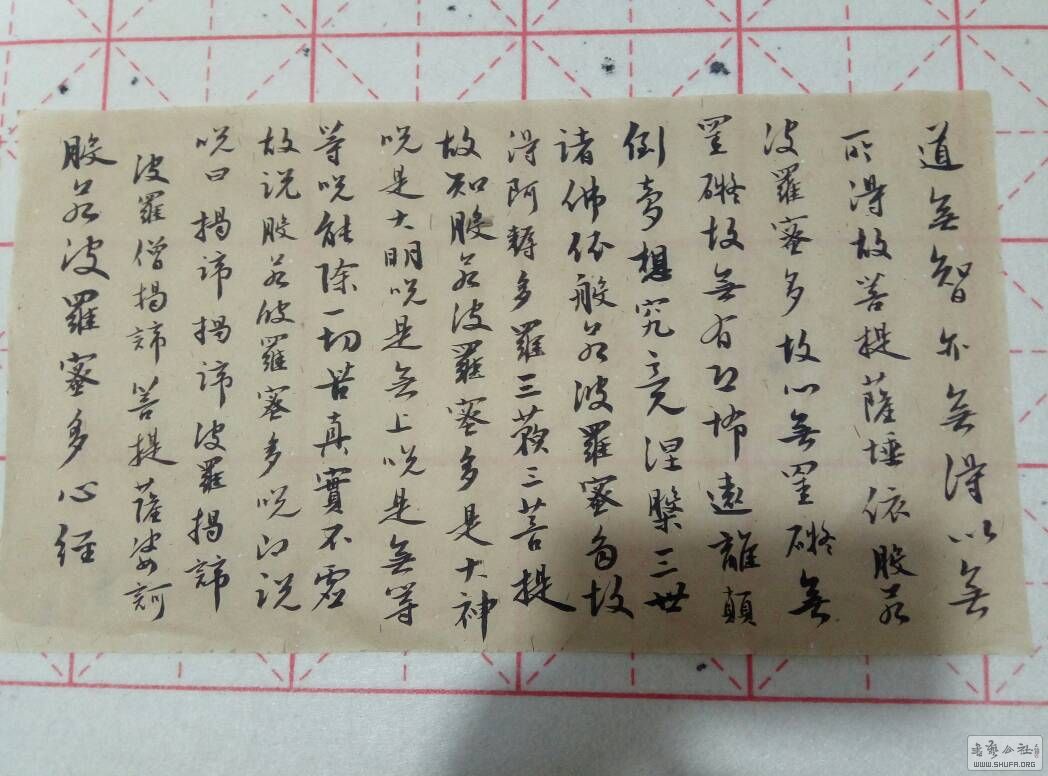 道無智亦無得以無
所得故菩提薩埵依般若
波羅蜜多故心無罣礙無
罣礙故無有恐怖遠離顛
倒夢想究竟涅槃三世
諸佛依般若波羅蜜多故
得阿耨多羅三藐三菩提
故知般若波羅蜜多是大神
咒是大明咒是無上咒是無等
等咒能除一切苦真實不虛
故說般若波羅蜜多咒即說
咒曰 揭諦揭諦波羅揭諦
波羅僧揭諦菩提薩婆訶
般若波羅蜜多心經
WWW.SHUFA.ORG